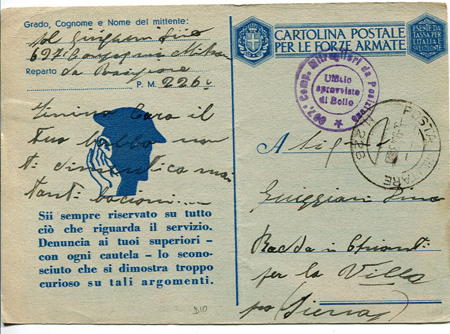 Grado, Cognome e Nome del mittente:
sol
697 Compagnia Mitra
Reparto da Posizione
P. M. 226
caro il
Tuo babbo non
ti dimentica mai
tanti bacioni
Sii sempre riservato su tutto
ciò che riguarda il servizio.
Denuncia ai tuoi superiori -
con ogni cautela - lo scono-
sciuto che si dimostra troppo
curioso su tali argomenti.
CARTOLINA POSTALE
PER LE FORZE ARMATE
ESENTE DA
TASSA PER
L'ITALIA E
697ª Comp. Mitraglieri da Posizione
Ufficio
sprovvisto
di Bollo
POSTA MILITARE
N. 226
Radda in Chianti
per la Villa
Siena